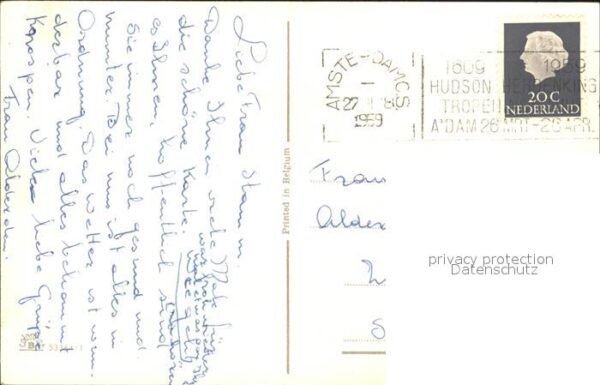 Liebe Frau Stamm.
Danke Ihnen viele Male für
die schöne Karte. wie geht
es Ihnen, hoffentlich sind
Sie immer noch gesund und
munter. Bei uns ist alles in
Ordnung. Das Wetter ist wun-
derbar und alles bekommt
Knospen. Viele liebe Grüsse
Frau Alderden.
Printed in Belgium
AMSTE-DAMCS
1
1959
1609 1959
HUDSON HERDENKING
TROPEN
A'DAM 26 MRT-26 APR.
20C
NEDERLAND
Frau
Alder
privacy protection
Datenschutz